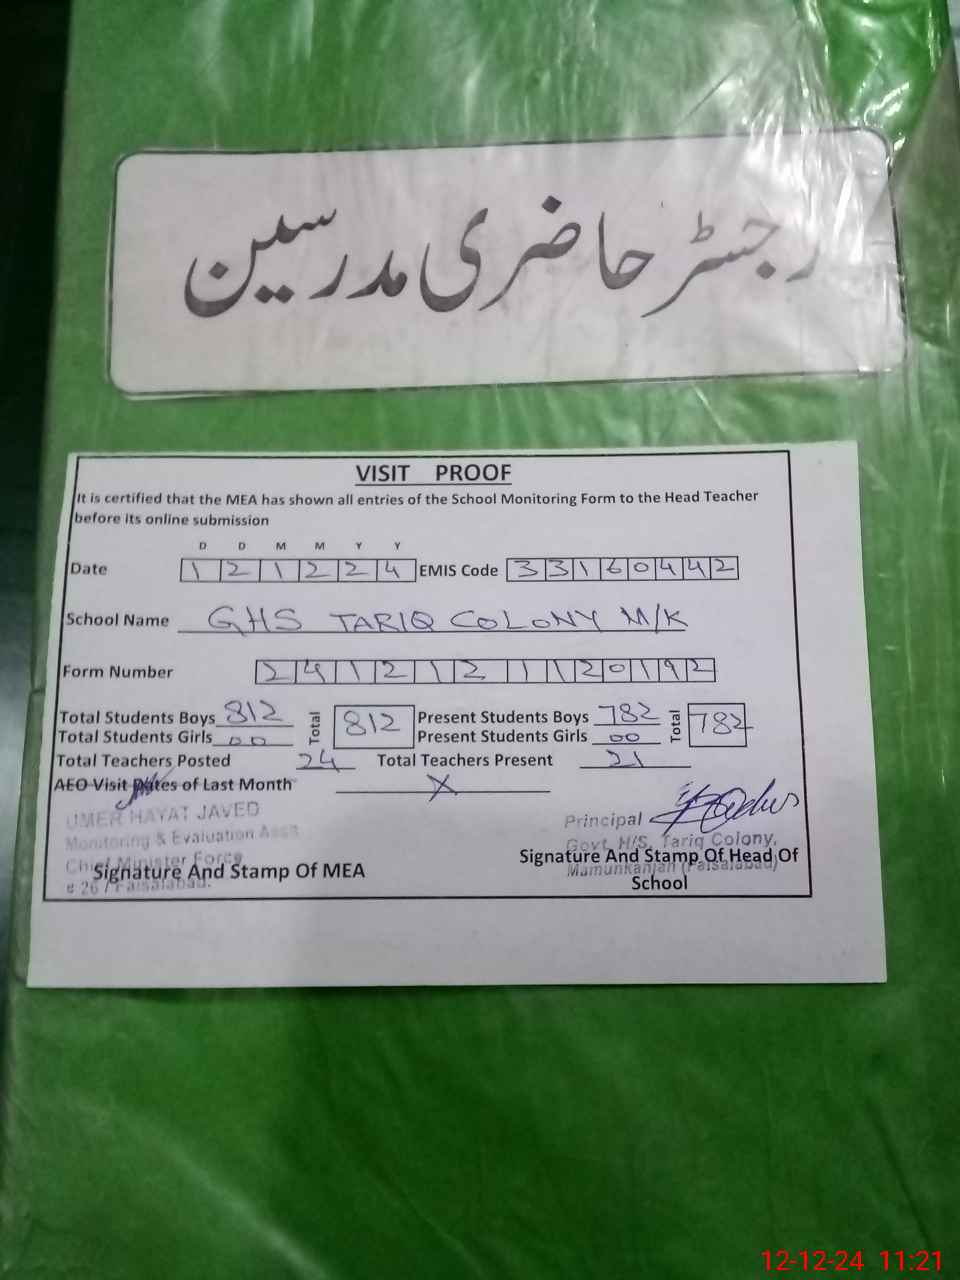 رجسٹر حاضری مدرسین
VISIT PROOF
It is certified that the MEA has shown all entries of the School Monitoring Form to the Head Teacher
before its online submission
D D M M Y Y
Date 1 2 1 2 2 4 EMIS Code 3 3 1 6 0 4 4 2
School Name GHS TARIQ COLONY M/K
Form Number 2 4 1 2 1 2 1 1 2 0 1 9 2
Total Students Boys 812 Total 812 Present Students Boys 782 Total 782
Total Students Girls 00 Present Students Girls 00
Total Teachers Posted 24 Total Teachers Present 21
AEO Visit Dates of Last Month X
UMER HAYAT JAVED
Monitoring & Evaluation Asstt
Chief Minister Force
# 26 / Faisalabad.
Signature And Stamp Of MEA
Principal
Govt. H/S, Tariq Colony,
Mamunkanjan (Faisalabad)
Signature And Stamp Of Head Of
School
12-12-24 11:21